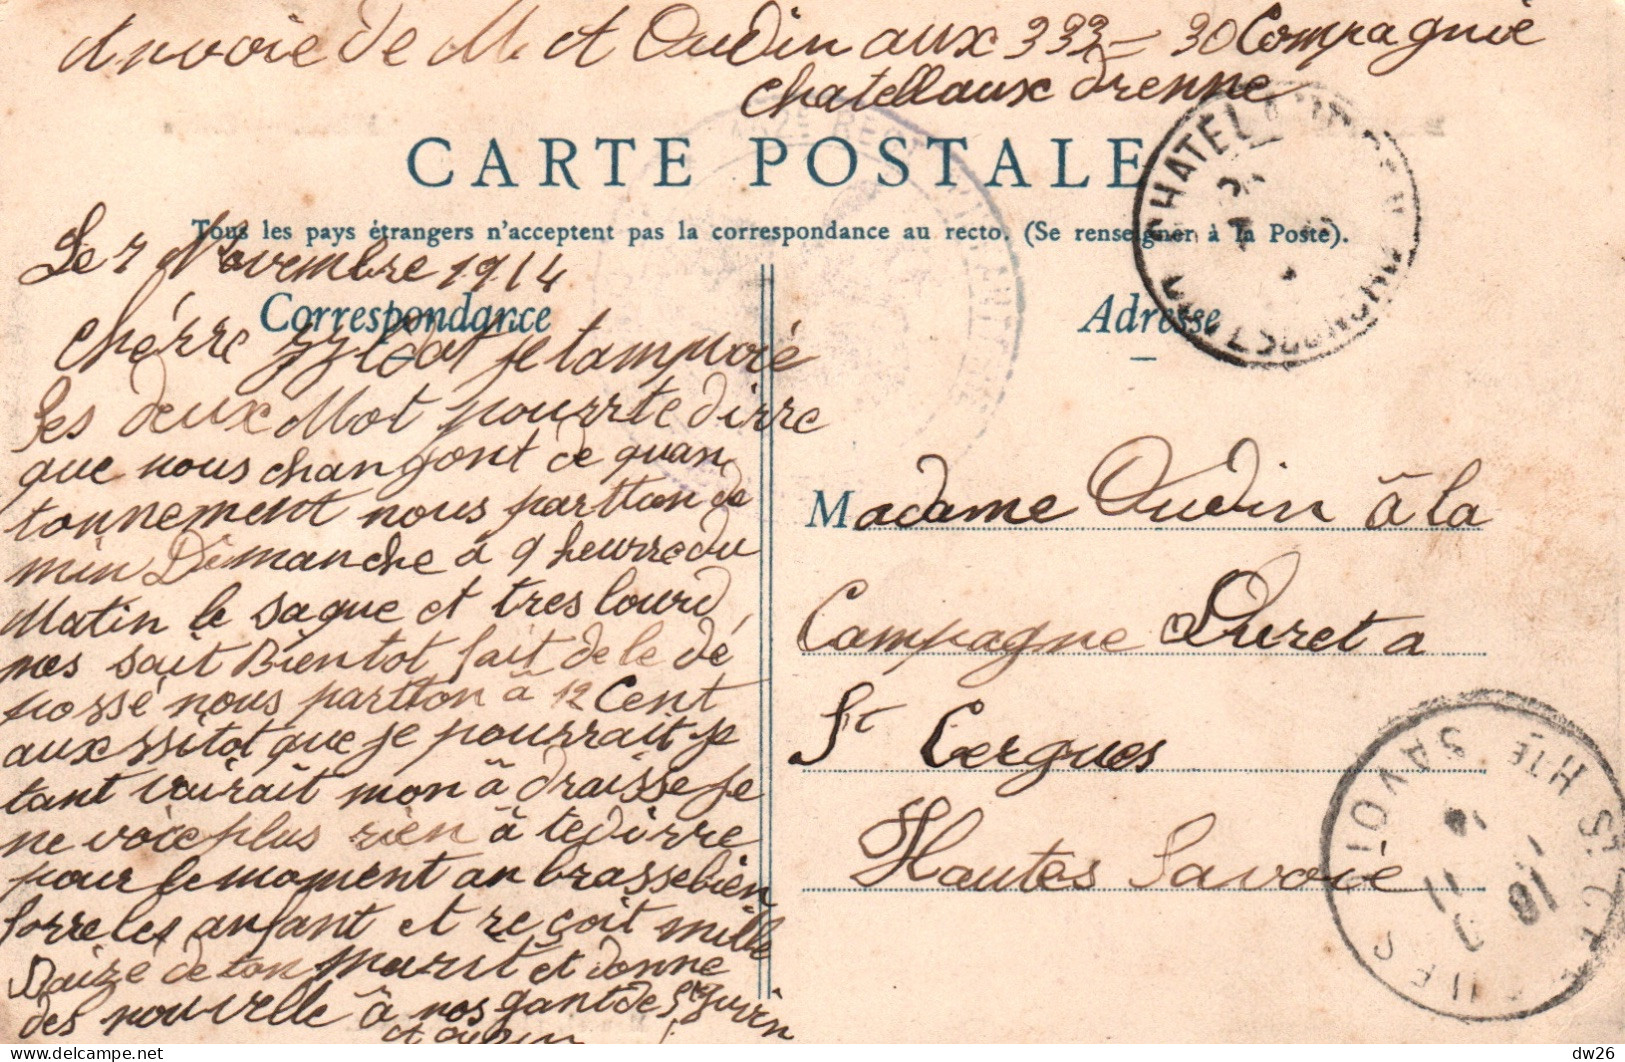 Anvoie de M. et Oudin aux 333 = 30 Compagnie
chatellaux drenne
CARTE POSTALE
Tous les pays étrangers n'acceptent pas la correspondance au recto. (Se renseigner à la Poste).
Le 7 Novembre 1914
Correspondance
chérre je tampvoié
ses deux Mot pourrte dirre
que nous changont de quan
tonnement nous partton de
min Dimanche a 9 heurre du
Matin le saque et tres lourd
mes sait Bientot fait de le dé
possé nous partton â 12 Cent
aux ssitot que je pourrait je
tant vairait mon â draisse je
ne voice plus rien â te dirre
pour le moment an brasse bien
forre les anfant et re çoit mille
Baizé de ton marit et donne
des nouvelle â nos gant de St Gurien
et Oudin
Adresse
Madame Oudin â la
Campagne Duret a
St Cergues
Hautes Savoie
CHATEL
ST CERGUES
HTE SAVOIE
dw26